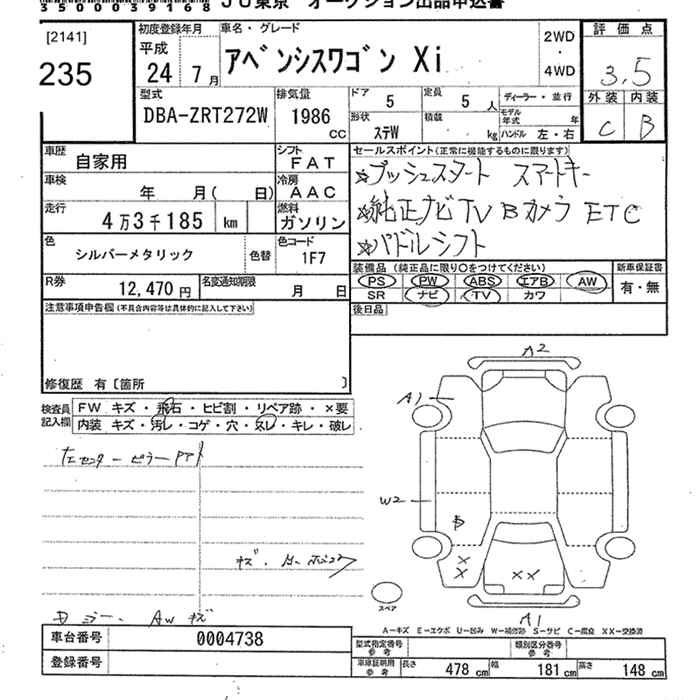 35000391​68 JU東京 オークション出品申込書
[2141]
235
初度登録年月
平成
24 7 月
車名・グレード
アベンシスワゴン Xi
2WD
・
4WD
評価点
3.5
外装 内装
C B
型式
DBA-ZRT272W
排気量
1986
CC
ドア 5
定員 5 人
形状 ステW
積載 kg
ディーラー・並行
モデル年式 年
ハンドル 左・右
車歴 自家用
シフト FAT
車検 年 月( 日)
冷房 AAC
走行 4万3千185 km
燃料 ガソリン
色 シルバーメタリック
色替
色コード 1F7
R券 12,470 円
名変通知期限 月 日
セールスポイント(正常に機能するものに限ります)
☆プッシュスタート スマートキー
☆純正ナビTV Bカメラ ETC
☆パドルシフト
装備品 (純正品に限り○をつけてください)
PS PW ABS エアB AW
SR ナビ TV カワ
新車保証書
有・無
後日品
注意事項申告欄(不具合内容等は具体的に記入して下さい)
修復歴 有〔箇所 〕
検査員記入欄
FW キズ・飛石・ヒビ割・リペア跡・×要
内装 キズ・汚レ・コゲ・穴・スレ・キレ・破レ
左センターピラー
キズ・
ミラー、AWキズ
A2
A1
W2
B
X
X
XX
A1
スペア
A-キズ E-エクボ U-凹み W-補修跡 S-サビ C-腐食 XX-交換済
車台番号 0004738
登録番号
型式指定番号 参考
類別区分番号 参考
車庫証明用 参考
長さ 478 cm 幅 181 cm 高さ 148 cm